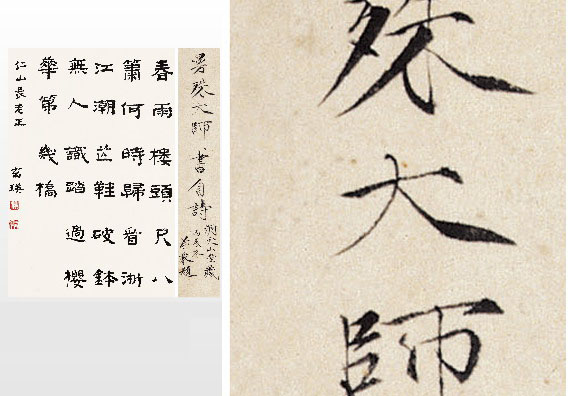 曼殊大師 書自詩
春雨樓頭尺八
簫何時歸看浙
江潮芒鞋破鉢
無人識踏過櫻
華第幾橋
仁山長老正
玄瑛
殊大師